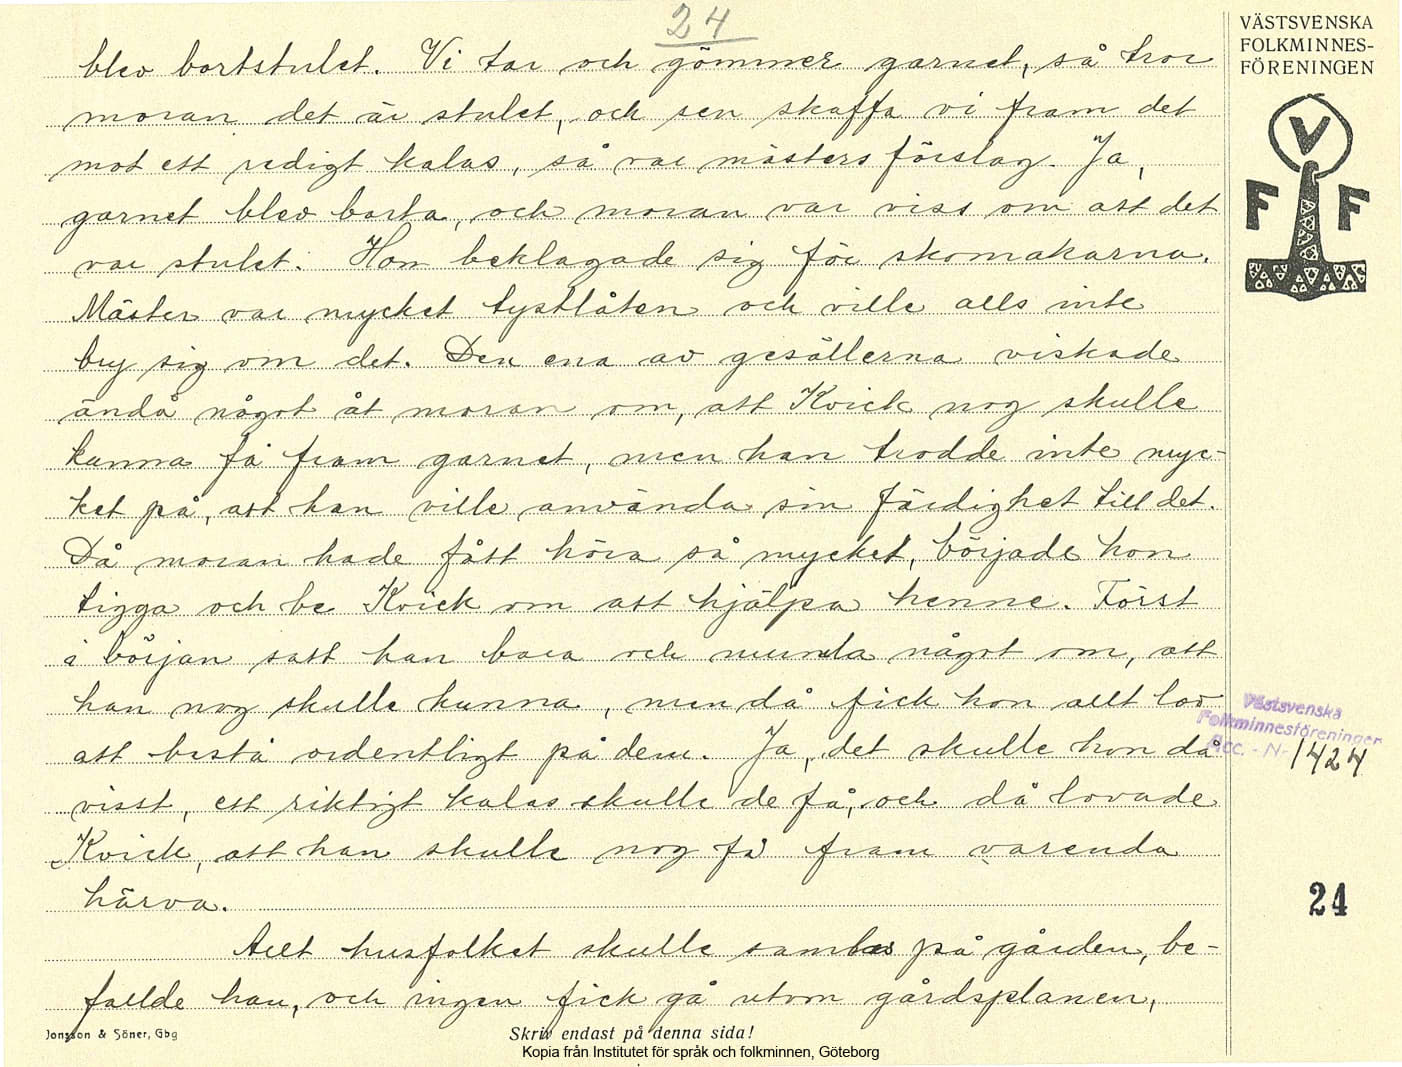 24
blev bortstulet. Vi tar och gömmer garnet, så tror
moran det är stulet, och sen skaffa vi fram det
mot ett redigt kalas, så var mästers förslag. Ja,
garnet blev borta, och moran var viss om att det
var stulet. Hon beklagade sig för skomakarna.
Mäster var mycket tystlåten och ville alls inte
bry sig om det. Den ena av gesällerna viskade
ändå något åt moran om, att Kvick nog skulle
kunna få fram garnet, men han trodde inte myc-
ket på, att han ville använda sin färdighet till det.
Då moran hade fått höra så mycket, började hon
tigga och be Kvick om att hjälpa henne. Först
i början satt han bara och mumla något om, att
han nog skulle kunna, men då fick hon allt lov
att bestå ordentligt på dem. Ja, det skulle hon då
visst, ett riktigt kalas skulle de få, och då lovade
Kvick, att han skulle nog få fram varenda
härva.
Allt husfolket skulle samlas på gården, be-
fallde han, och ingen fick gå utom gårdsplanen,
Jonsson & Söner, Gbg
Skriv endast på denna sida!
Kopia från Institutet för språk och folkminnen, Göteborg
VÄSTSVENSKA
FOLKMINNES-
FÖRENINGEN
V
F F
Västsvenska
Folkminnesföreningen
Acc. - N- 1424
24